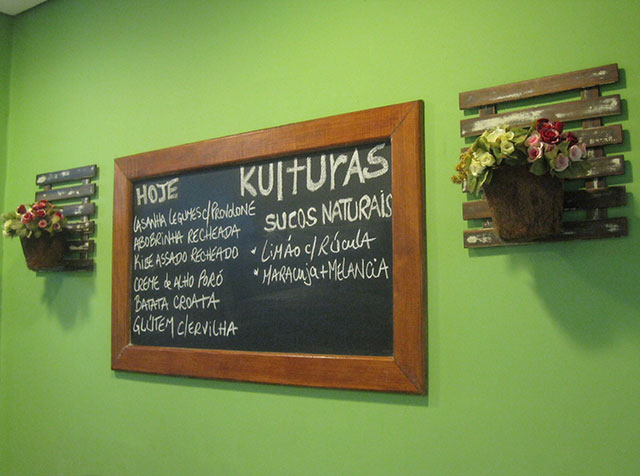 HOJE
LASANHA LEGUMES C/PROVOLONE
ABOBRINHA RECHEADA
KIBE ASSADO RECHEADO
CREME de ALHO PORÓ
BATATA CROATA
GLÚTEM C/ERVILHA
KULTURAS
SUCOS NATURAIS
* LIMÃO C/ RÚCULA
* MARACUJA + MELANCIA